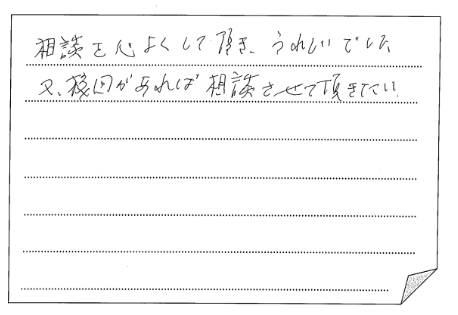 相談を心よくして頂き、うれしいでした
又、機回があれば相談させて頂きたい